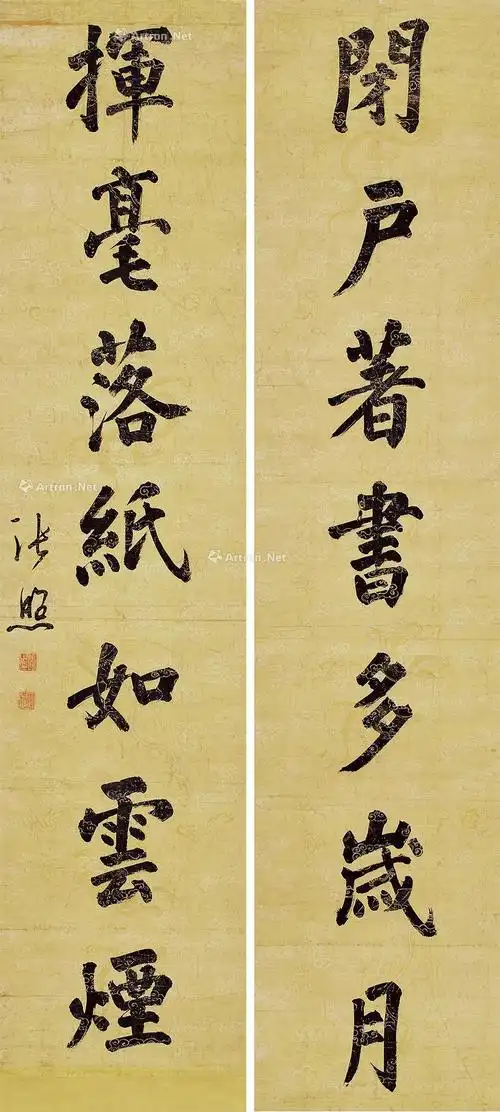 閉戶著書多歲月
揮毫落紙如雲煙
張照
Artron.Net
Artron.Net
Artron.Net